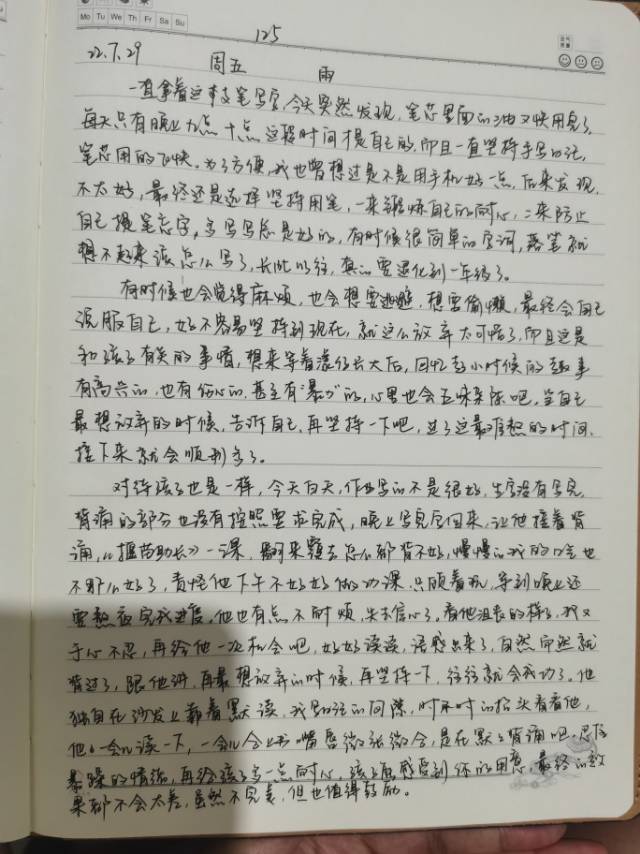 Mo Tu We Th Fr Sa Su
125
22.7.29 周五 雨
一直拿着这支笔写字,今天突然发现,笔芯里面的油又快用完了,
每天只有晚上九点十点这段时间才是自己的,而且一直坚持手写日记,
笔芯用的飞快。为了方便,我也曾想过是不是用手机好一点,后来发现
不太好,最终还是选择坚持用笔,一来锻炼自己的耐心,二来防止
自己提笔忘字,多写写总是好的,有时候很简单的字词,落笔就
想不起来该怎么写了,长此以往,真的要退化到一年级了。
有时候也会觉得麻烦,也会想要逃避,想要偷懒,最终会自己
说服自己,好不容易坚持到现在,就这么放弃太可惜了,而且这是
和孩子有关的事情,想来等着潇仔长大后,回忆起小时候的趣事
有高兴的,也有伤心的,甚至有“暴力”的,心里也会五味杂陈吧,当自己
最想放弃的时候,告诉自己,再坚持一下吧,过了这最难熬的时间,
接下来就会顺利多了。
对待孩子也是一样,今天白天,作业写的不是很好,生字没有写完,
背诵的部分也没有按照要求完成,晚上写完字回来,让他接着背
诵,《揠苗助长》一课,翻来覆去怎么都背不好,慢慢的我的口气也
不那么好了,责怪他下午不好好做功课,只顾着玩,等到晚上还
要熬夜完成进度,他也有点不耐烦,失去信心了。看他沮丧的样子,我又
于心不忍,再给他一次机会吧,好好读读,语感出来了,自然而然就
背过了,跟他讲,再最想放弃的时候,再坚持一下,往往就会成功了。他
独自在沙发上靠着默读,我写日记的间隙,时不时的抬头看看他,
他一会儿读一下,一会儿合上书,嘴唇微张微合,是在默默背诵吧,
暴躁的情绪,再给孩子多一点耐心,孩子感受到你的用意,最终的效
果都不会太差,虽然不完美,但也值得鼓励。